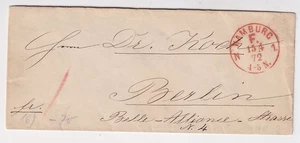 Herrn Dr. Koch
Berlin
fr.
Belle-Alliance-Strasse
N. 4
HAMBURG
F.
13 4
72
4-5 N.